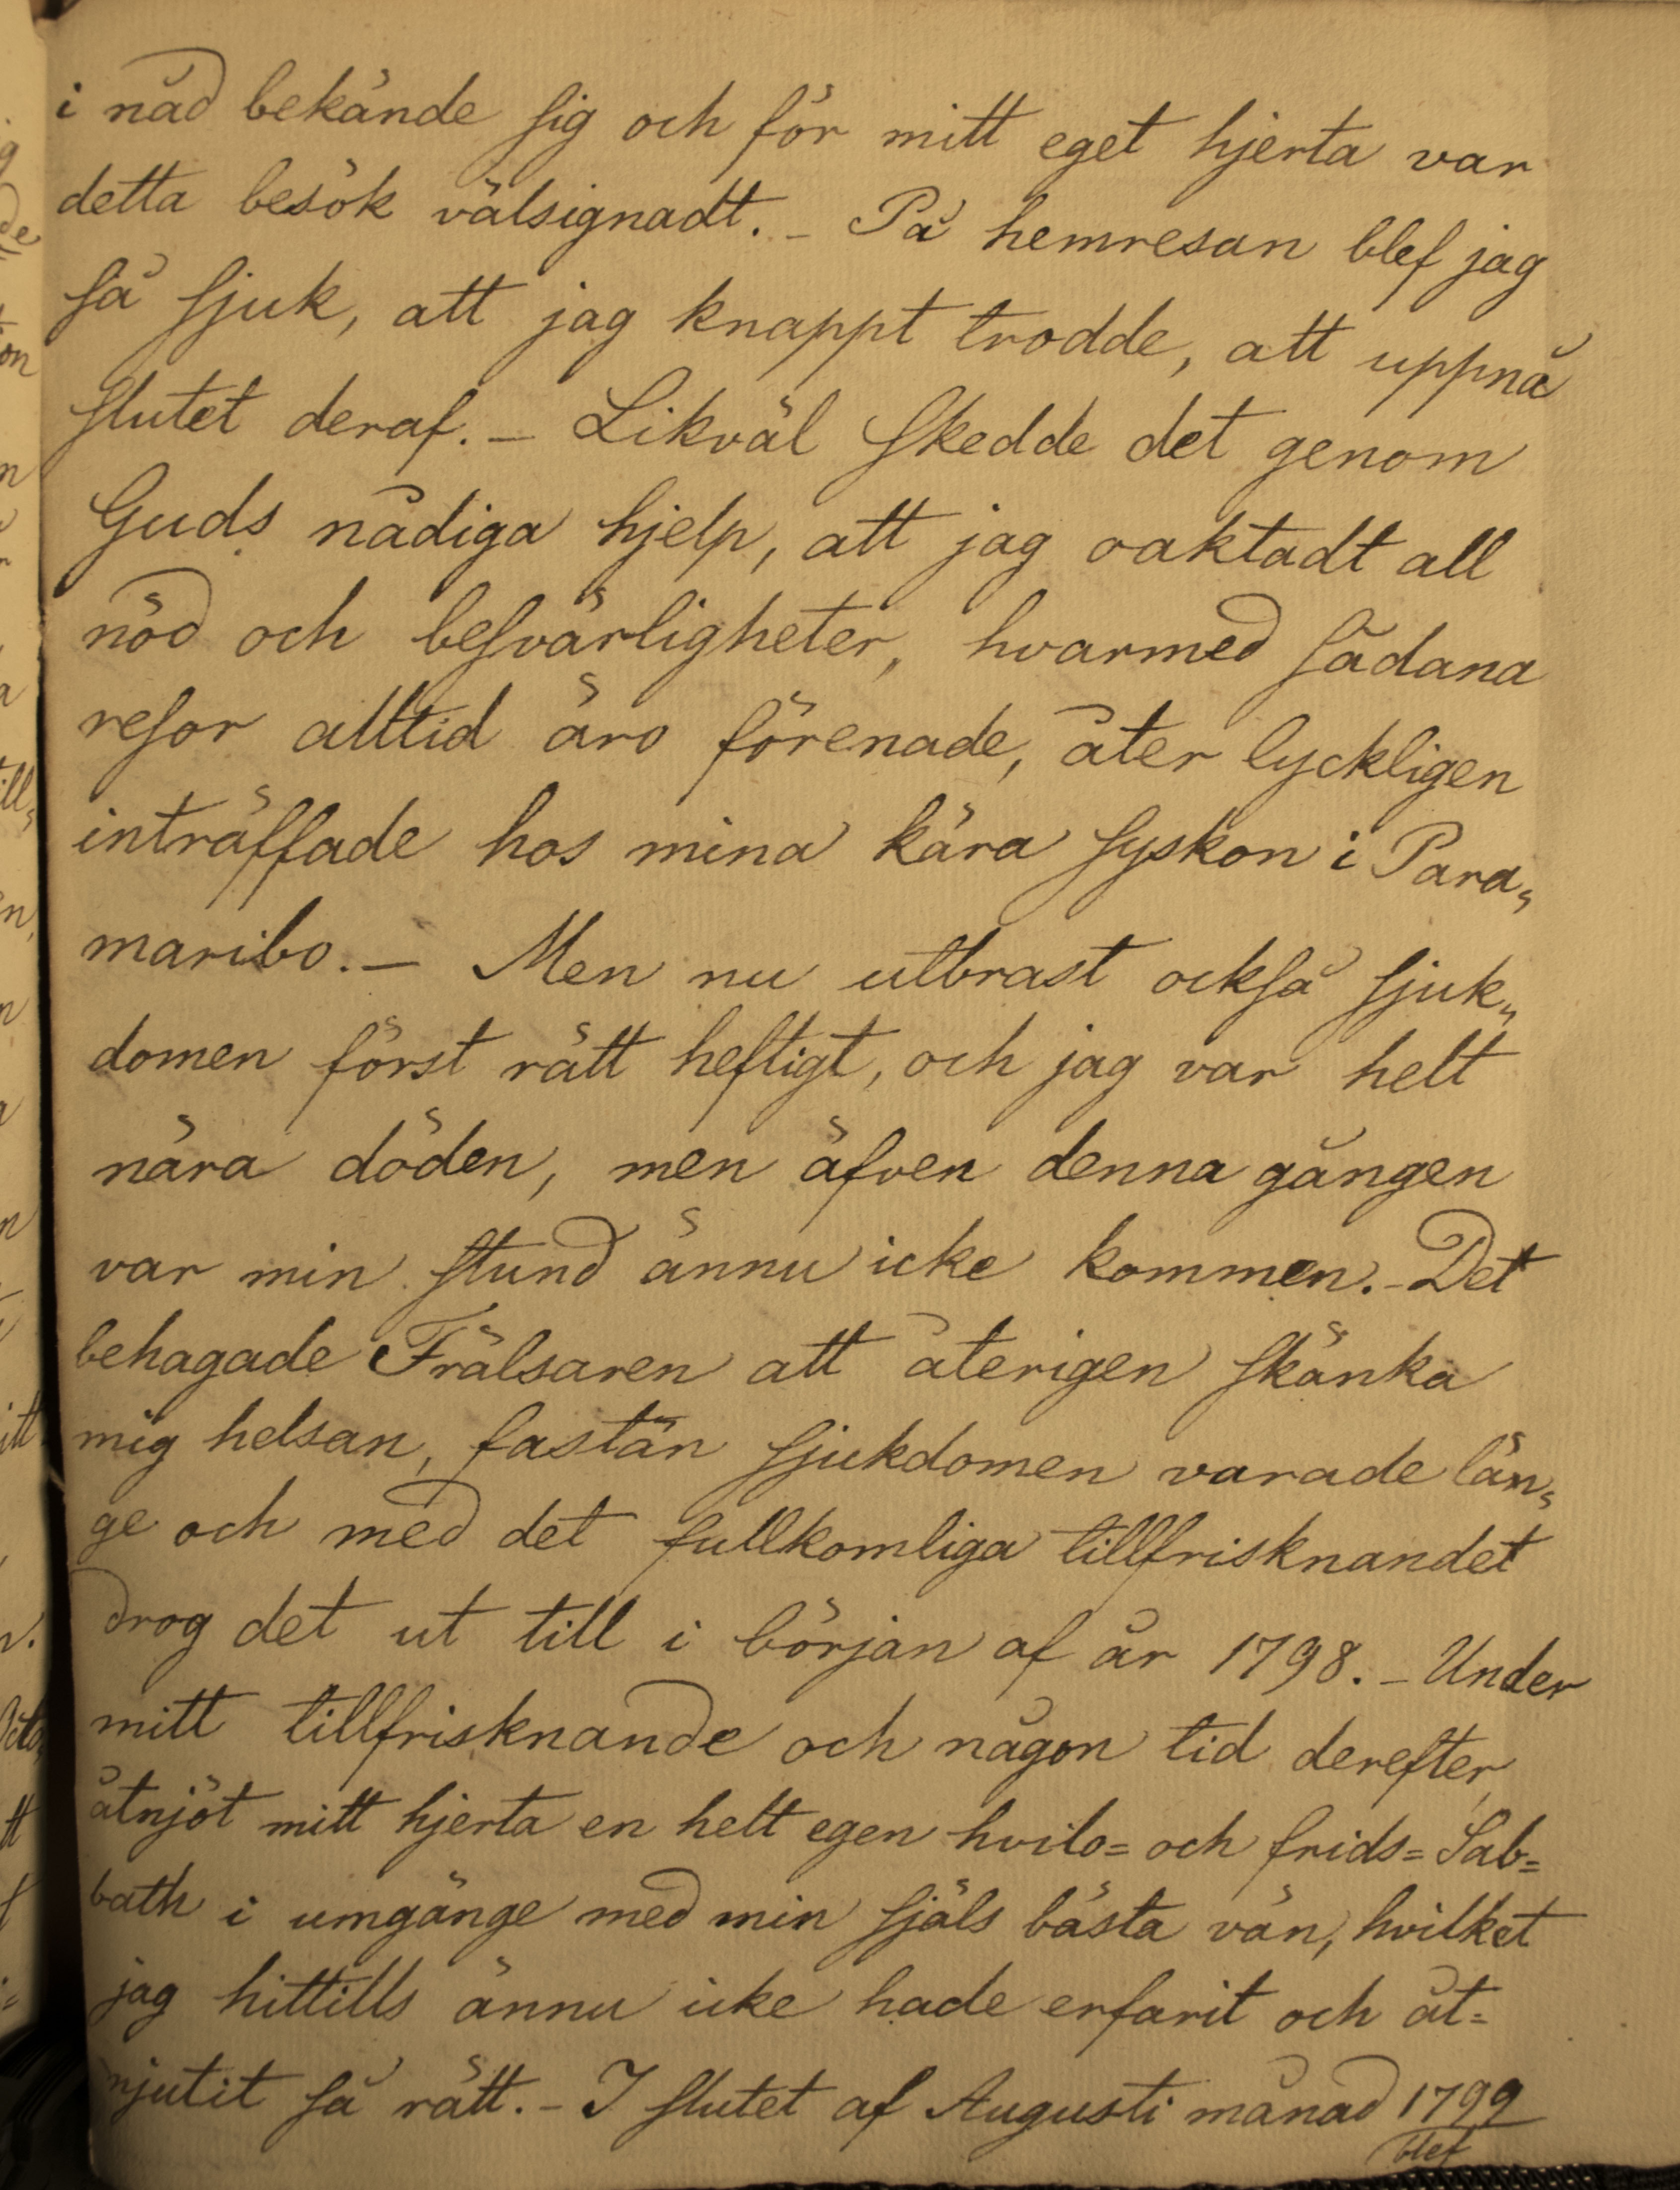 i nåd bekände sig och för mitt eget hjerta var
detta besök välsignadt. – På hemresan blef jag
så sjuk, att jag knappt trodde, att uppnå
slutet deraf. – Likväl skedde det genom
Guds nådiga hjelp, att jag oaktadt all
nöd och besvärligheter, hvarmed sådana
resor alltid äro förenade, åter lyckligen
inträffade hos mina kära syskon i Para„
maribo. – Men nu utbrast också sjuk„
domen först rätt heftigt, och jag var helt
nära döden, men äfven denna gången
var min stund ännu icke kommen. – Det
behagade Frälsaren att återigen skänka
mig helsan, fastän sjukdomen varade län„
ge och med det fullkomliga tillfrisknandet
drog det ut till i början af år 1798. – Under
mitt tillfrisknande och någon tid derefter,
åtnjöt mitt hjerta en helt egen hvilo= och frids=Sab=
bath i umgänge med min själs bästa vän, hvilket
jag hittills ännu icke hade erfarit och åt=
njutit så rätt. – I slutet af Augusti månad 1799
blef